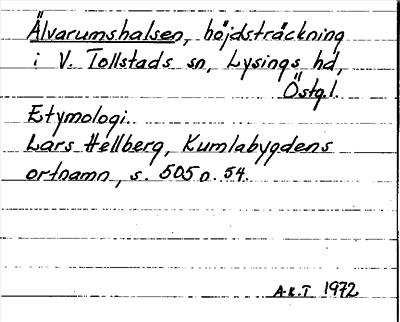 Älvarumshalsen, höjdsträckning
i V. Tollstads sn, Lysings hd,
Östg.l.
Etymologi.
Lars Hellberg, Kumlabygdens
ortnamn, s. 505 o. 54.
A.K.T 1972